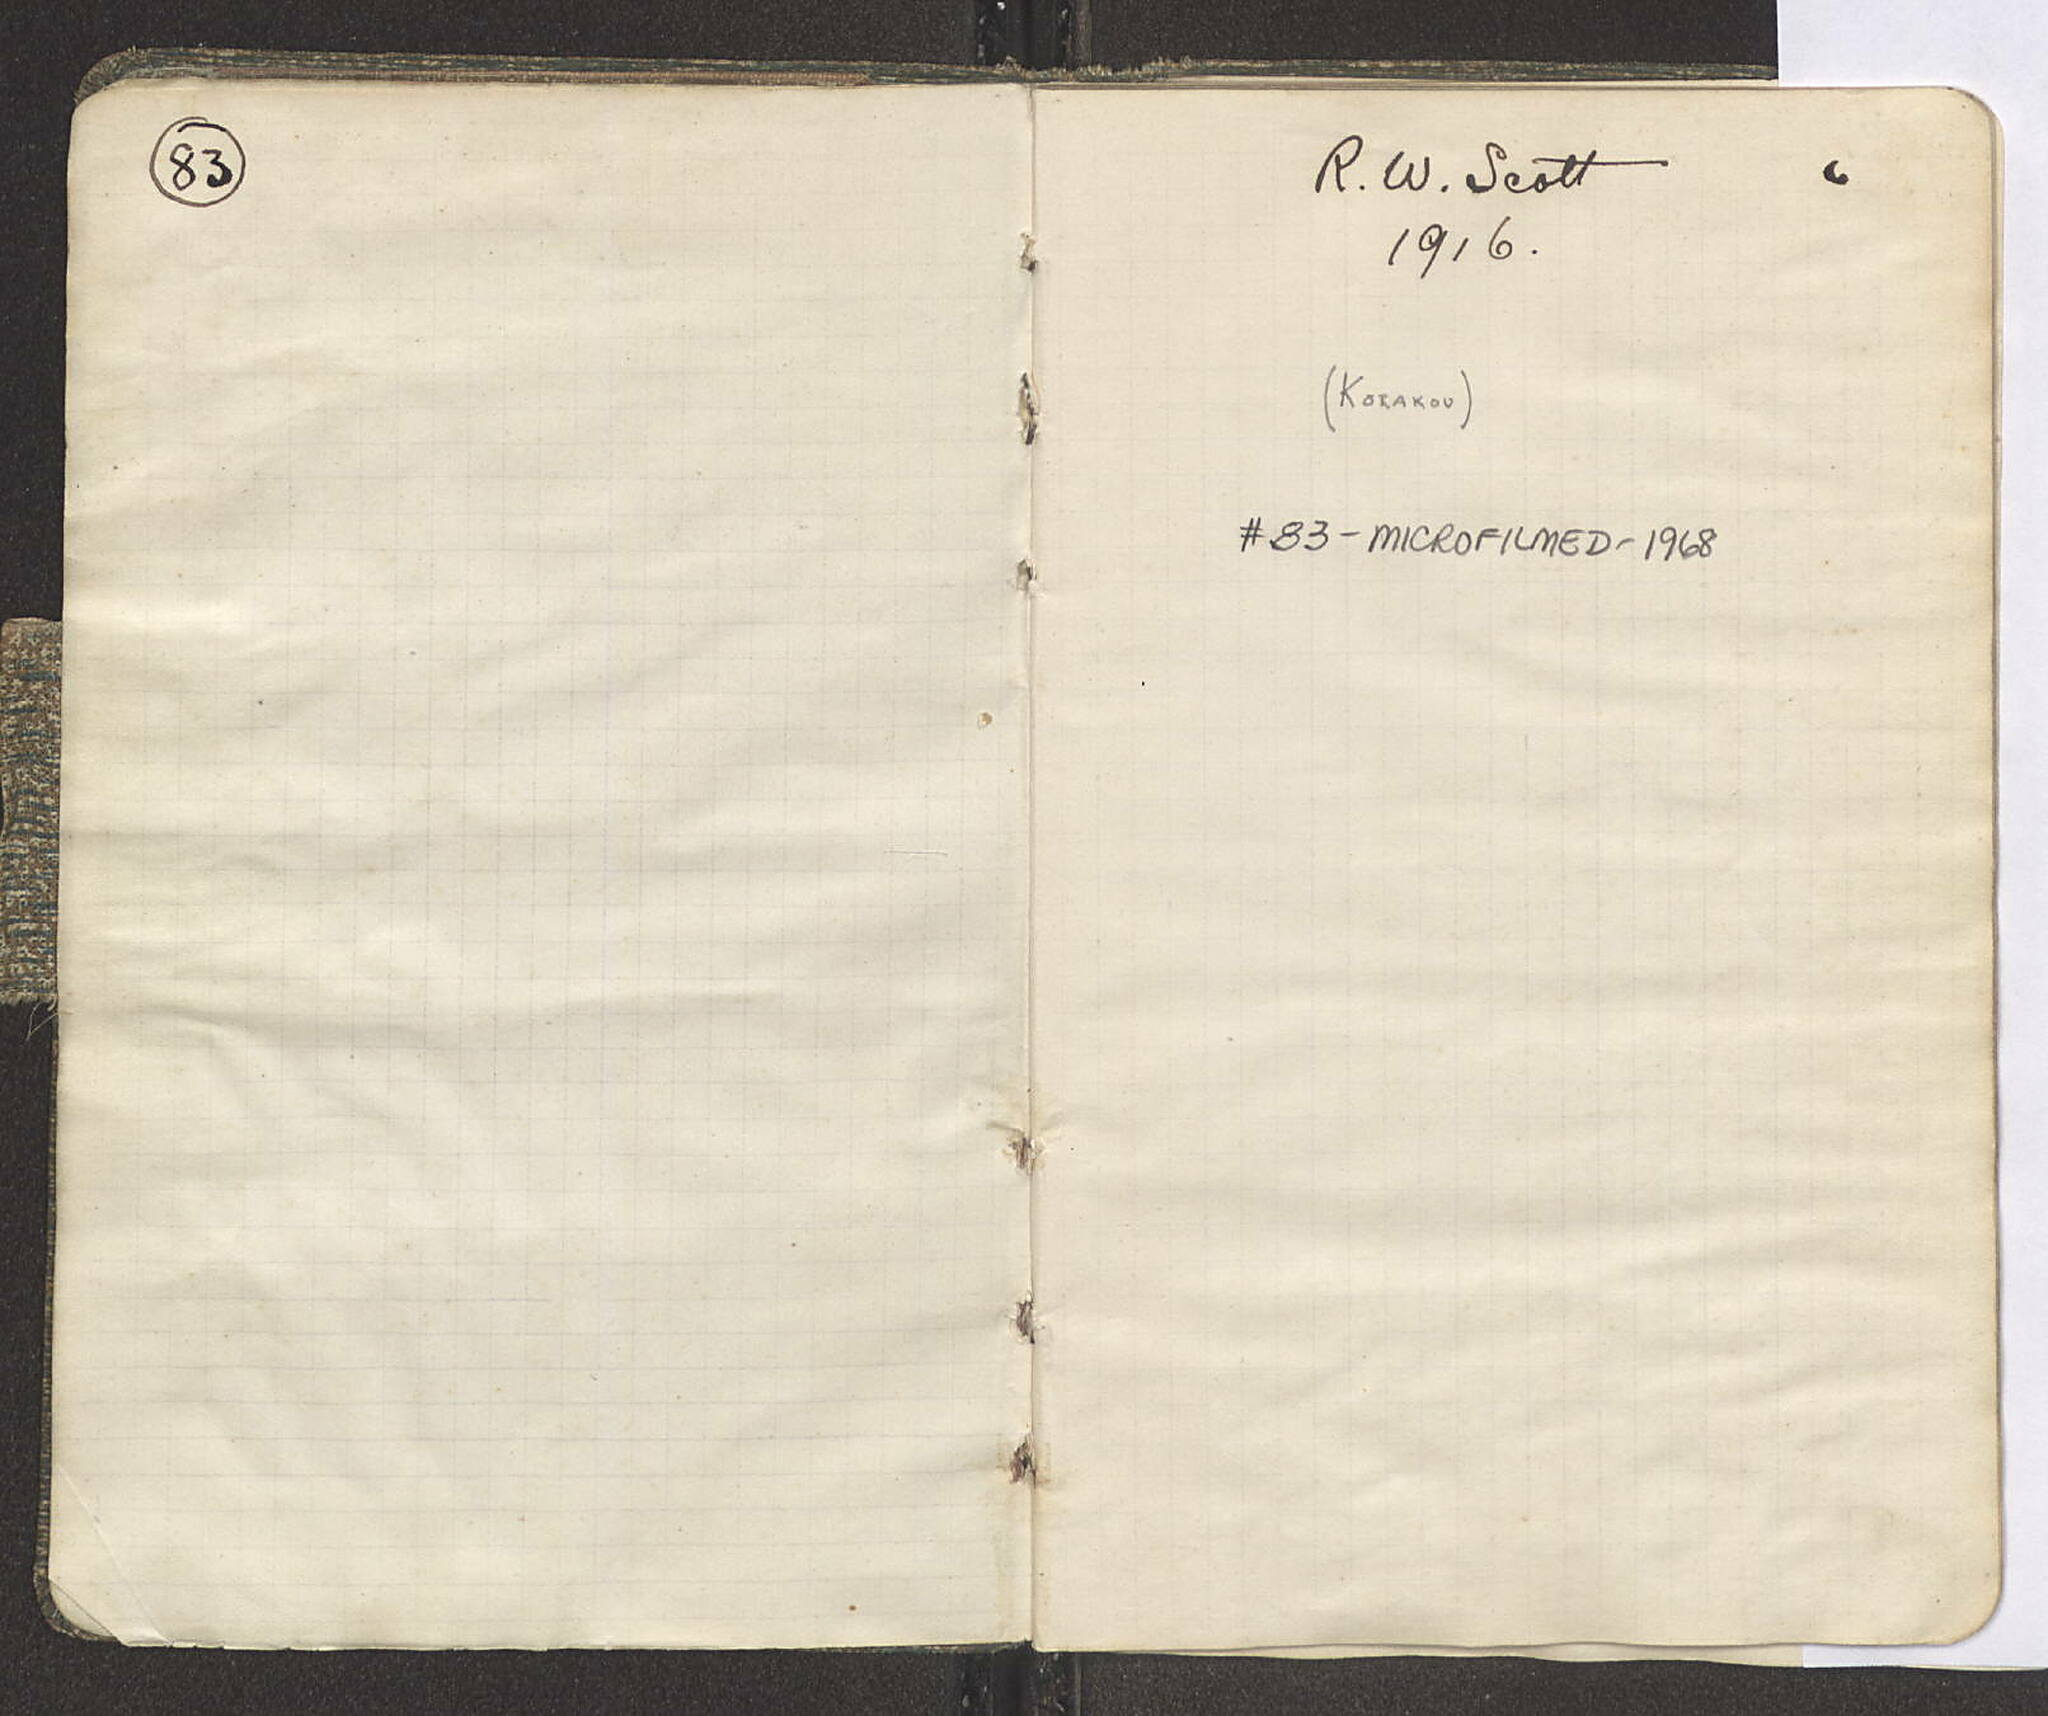 83
R. W. Scott
1916.
(KORAKOU)
#83-MICROFILMED-1968